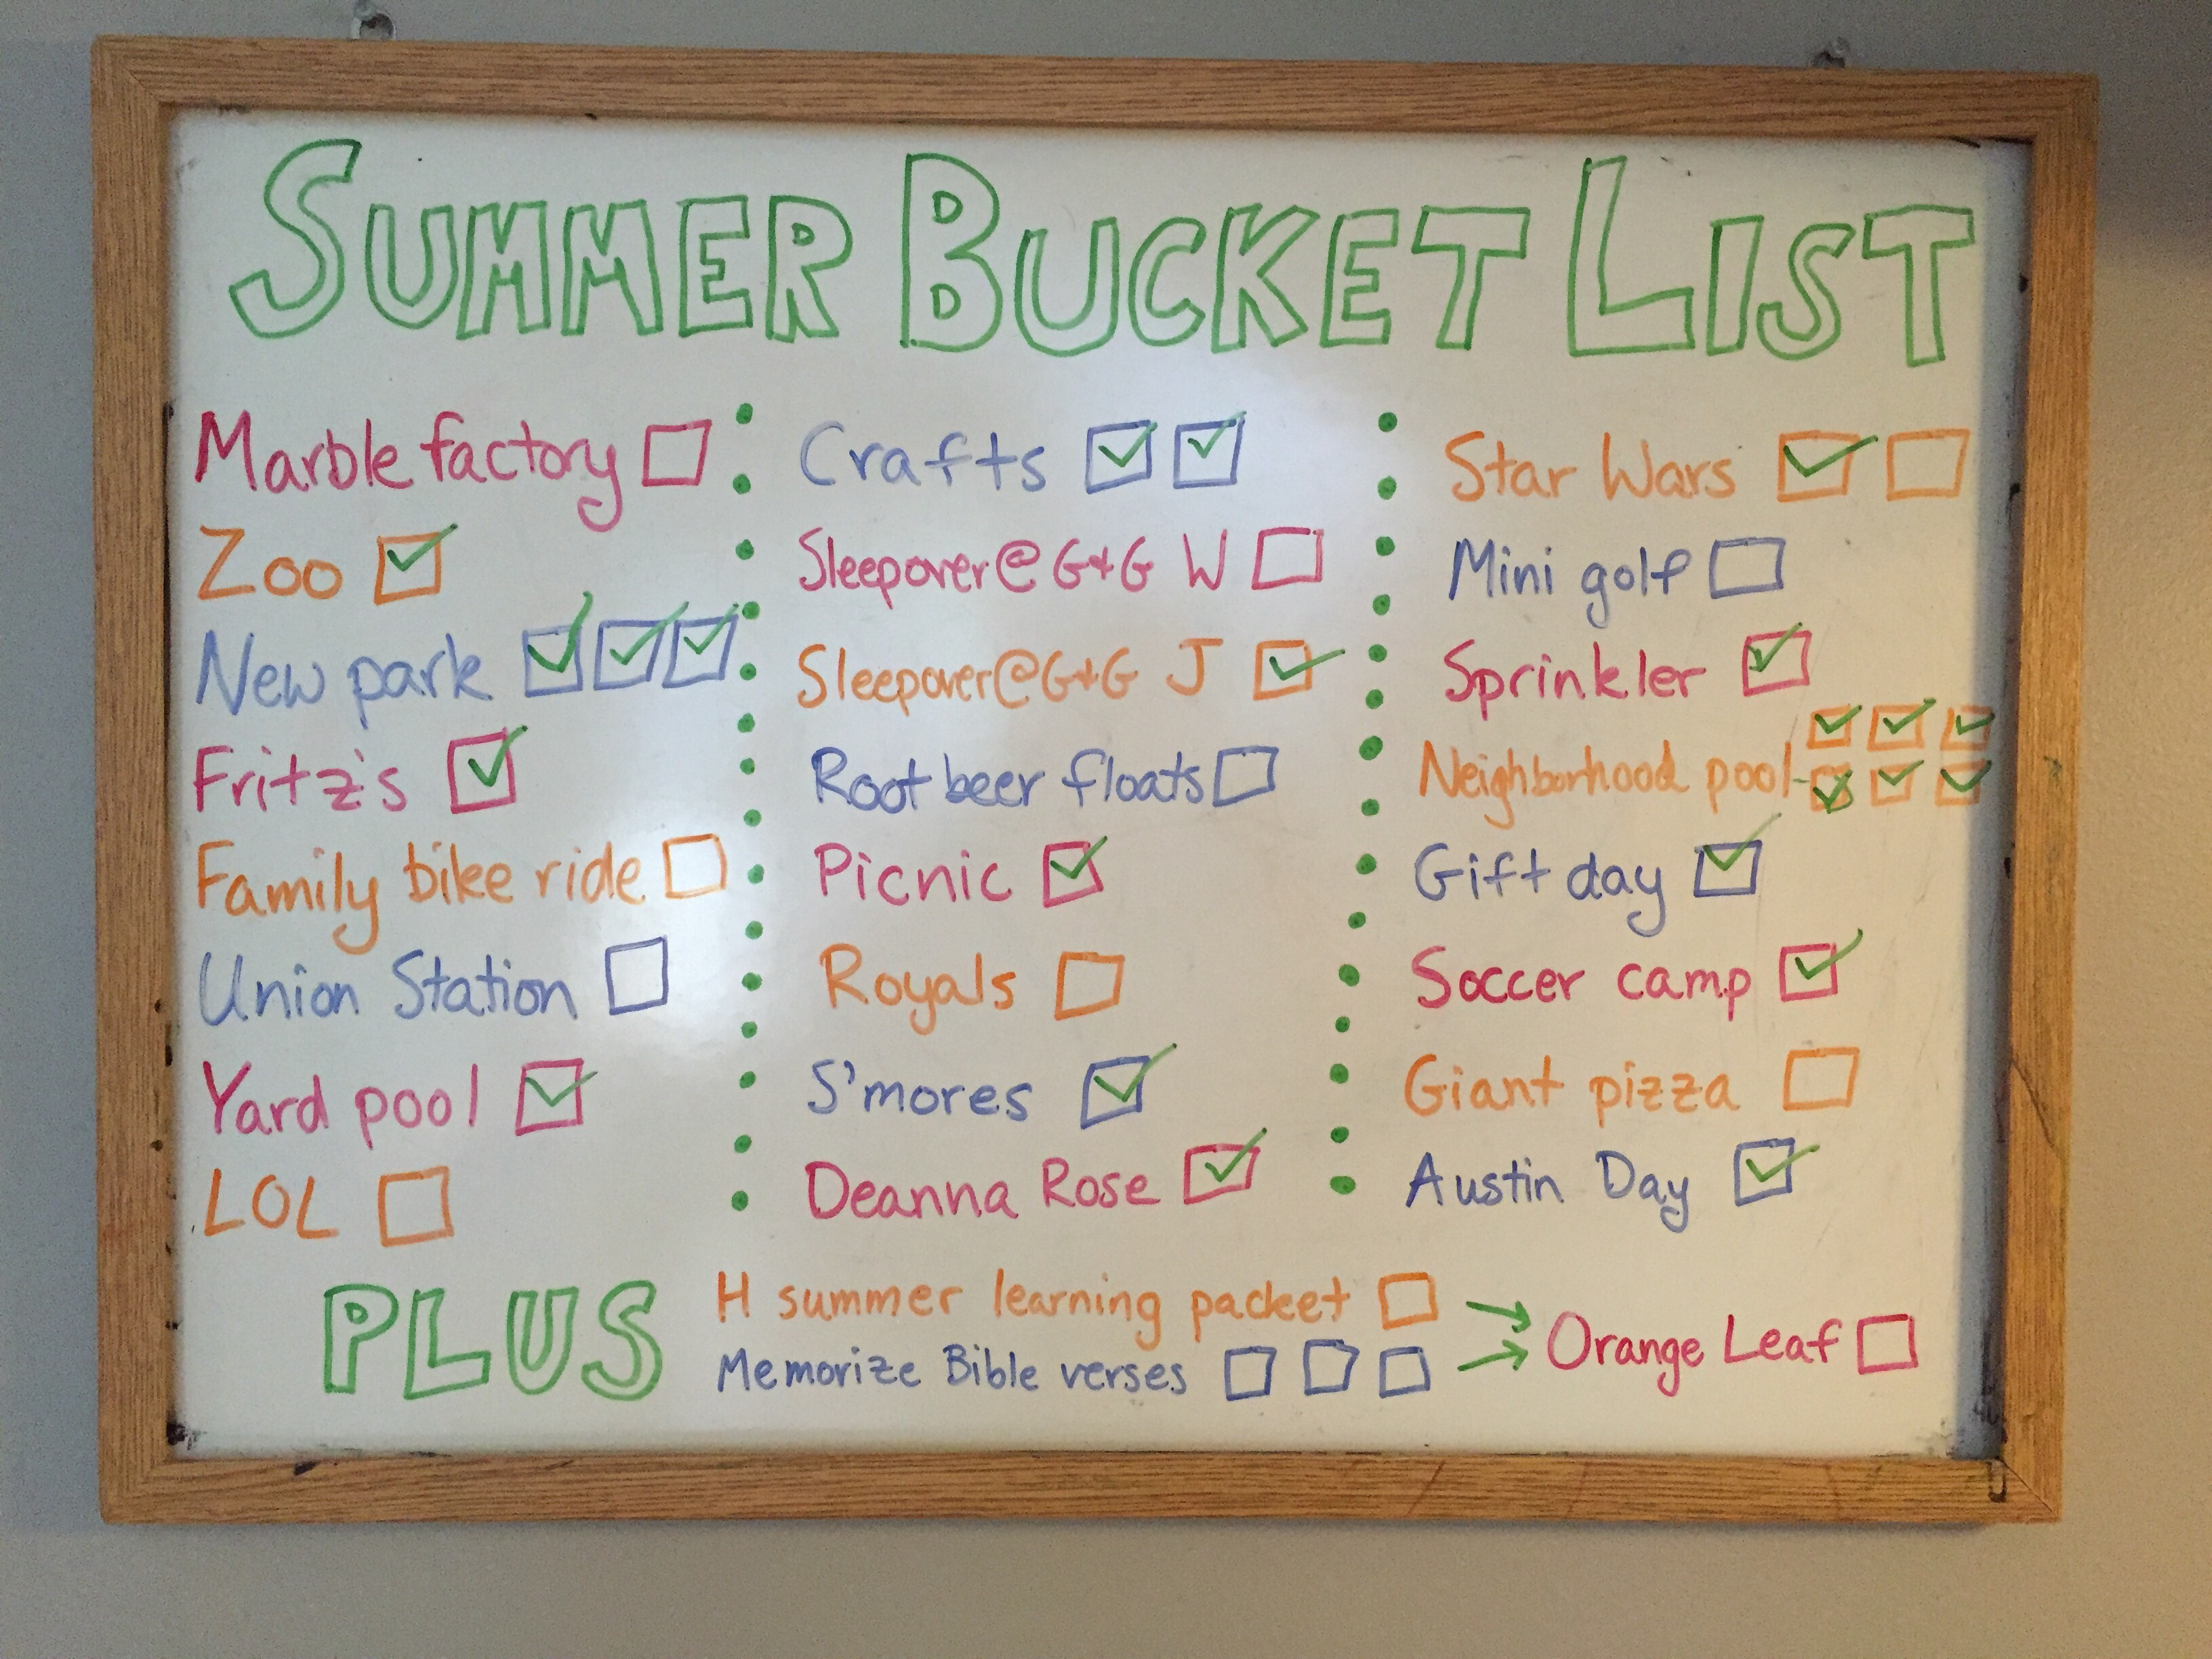 SUMMER BUCKET LIST
Marble factory
Zoo
New park
Fritz's
Family bike ride
Union Station
Yard pool
LOL
Crafts
Sleepover@G+G W
Sleepover@G+G J
Root beer floats
Picnic
Royals
S'mores
Deanna Rose
Star Wars
Mini golf
Sprinkler
Neighborhood pool
Gift day
Soccer camp
Giant pizza
Austin Day
PLUS
H summer learning packet
Memorize Bible verses
Orange Leaf